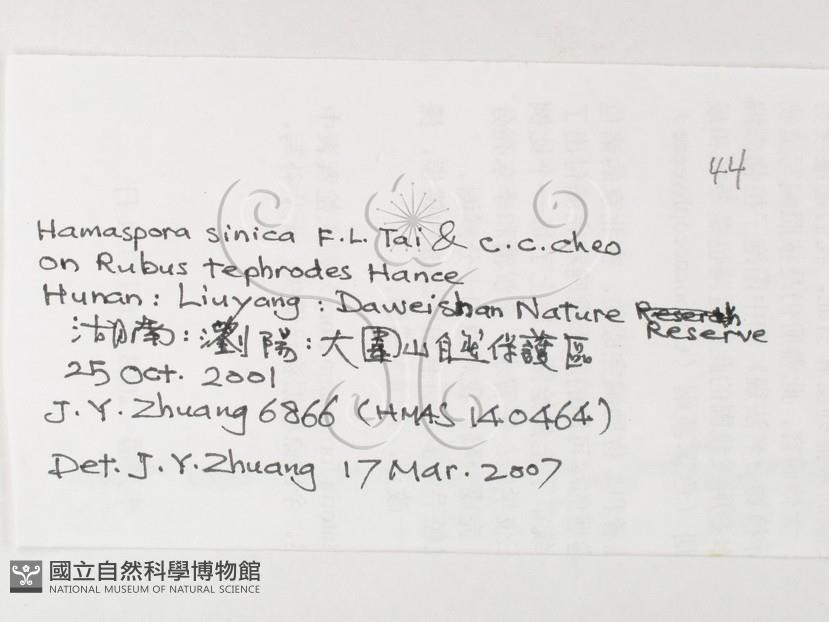 44
Hamaspora sinica F.L. Tai & C.C. Cheo
on Rubus tephrodes Hance
Hunan: Liuyang: Daweishan Nature
Reserve
湖南: 瀏陽: 大圍山自然保護區
25 Oct. 2001
J.Y. Zhuang 6866 (HMAS 140464)
Det. J.Y. Zhuang 17 Mar. 2007
國立自然科學博物館
NATIONAL MUSEUM OF NATURAL SCIENCE